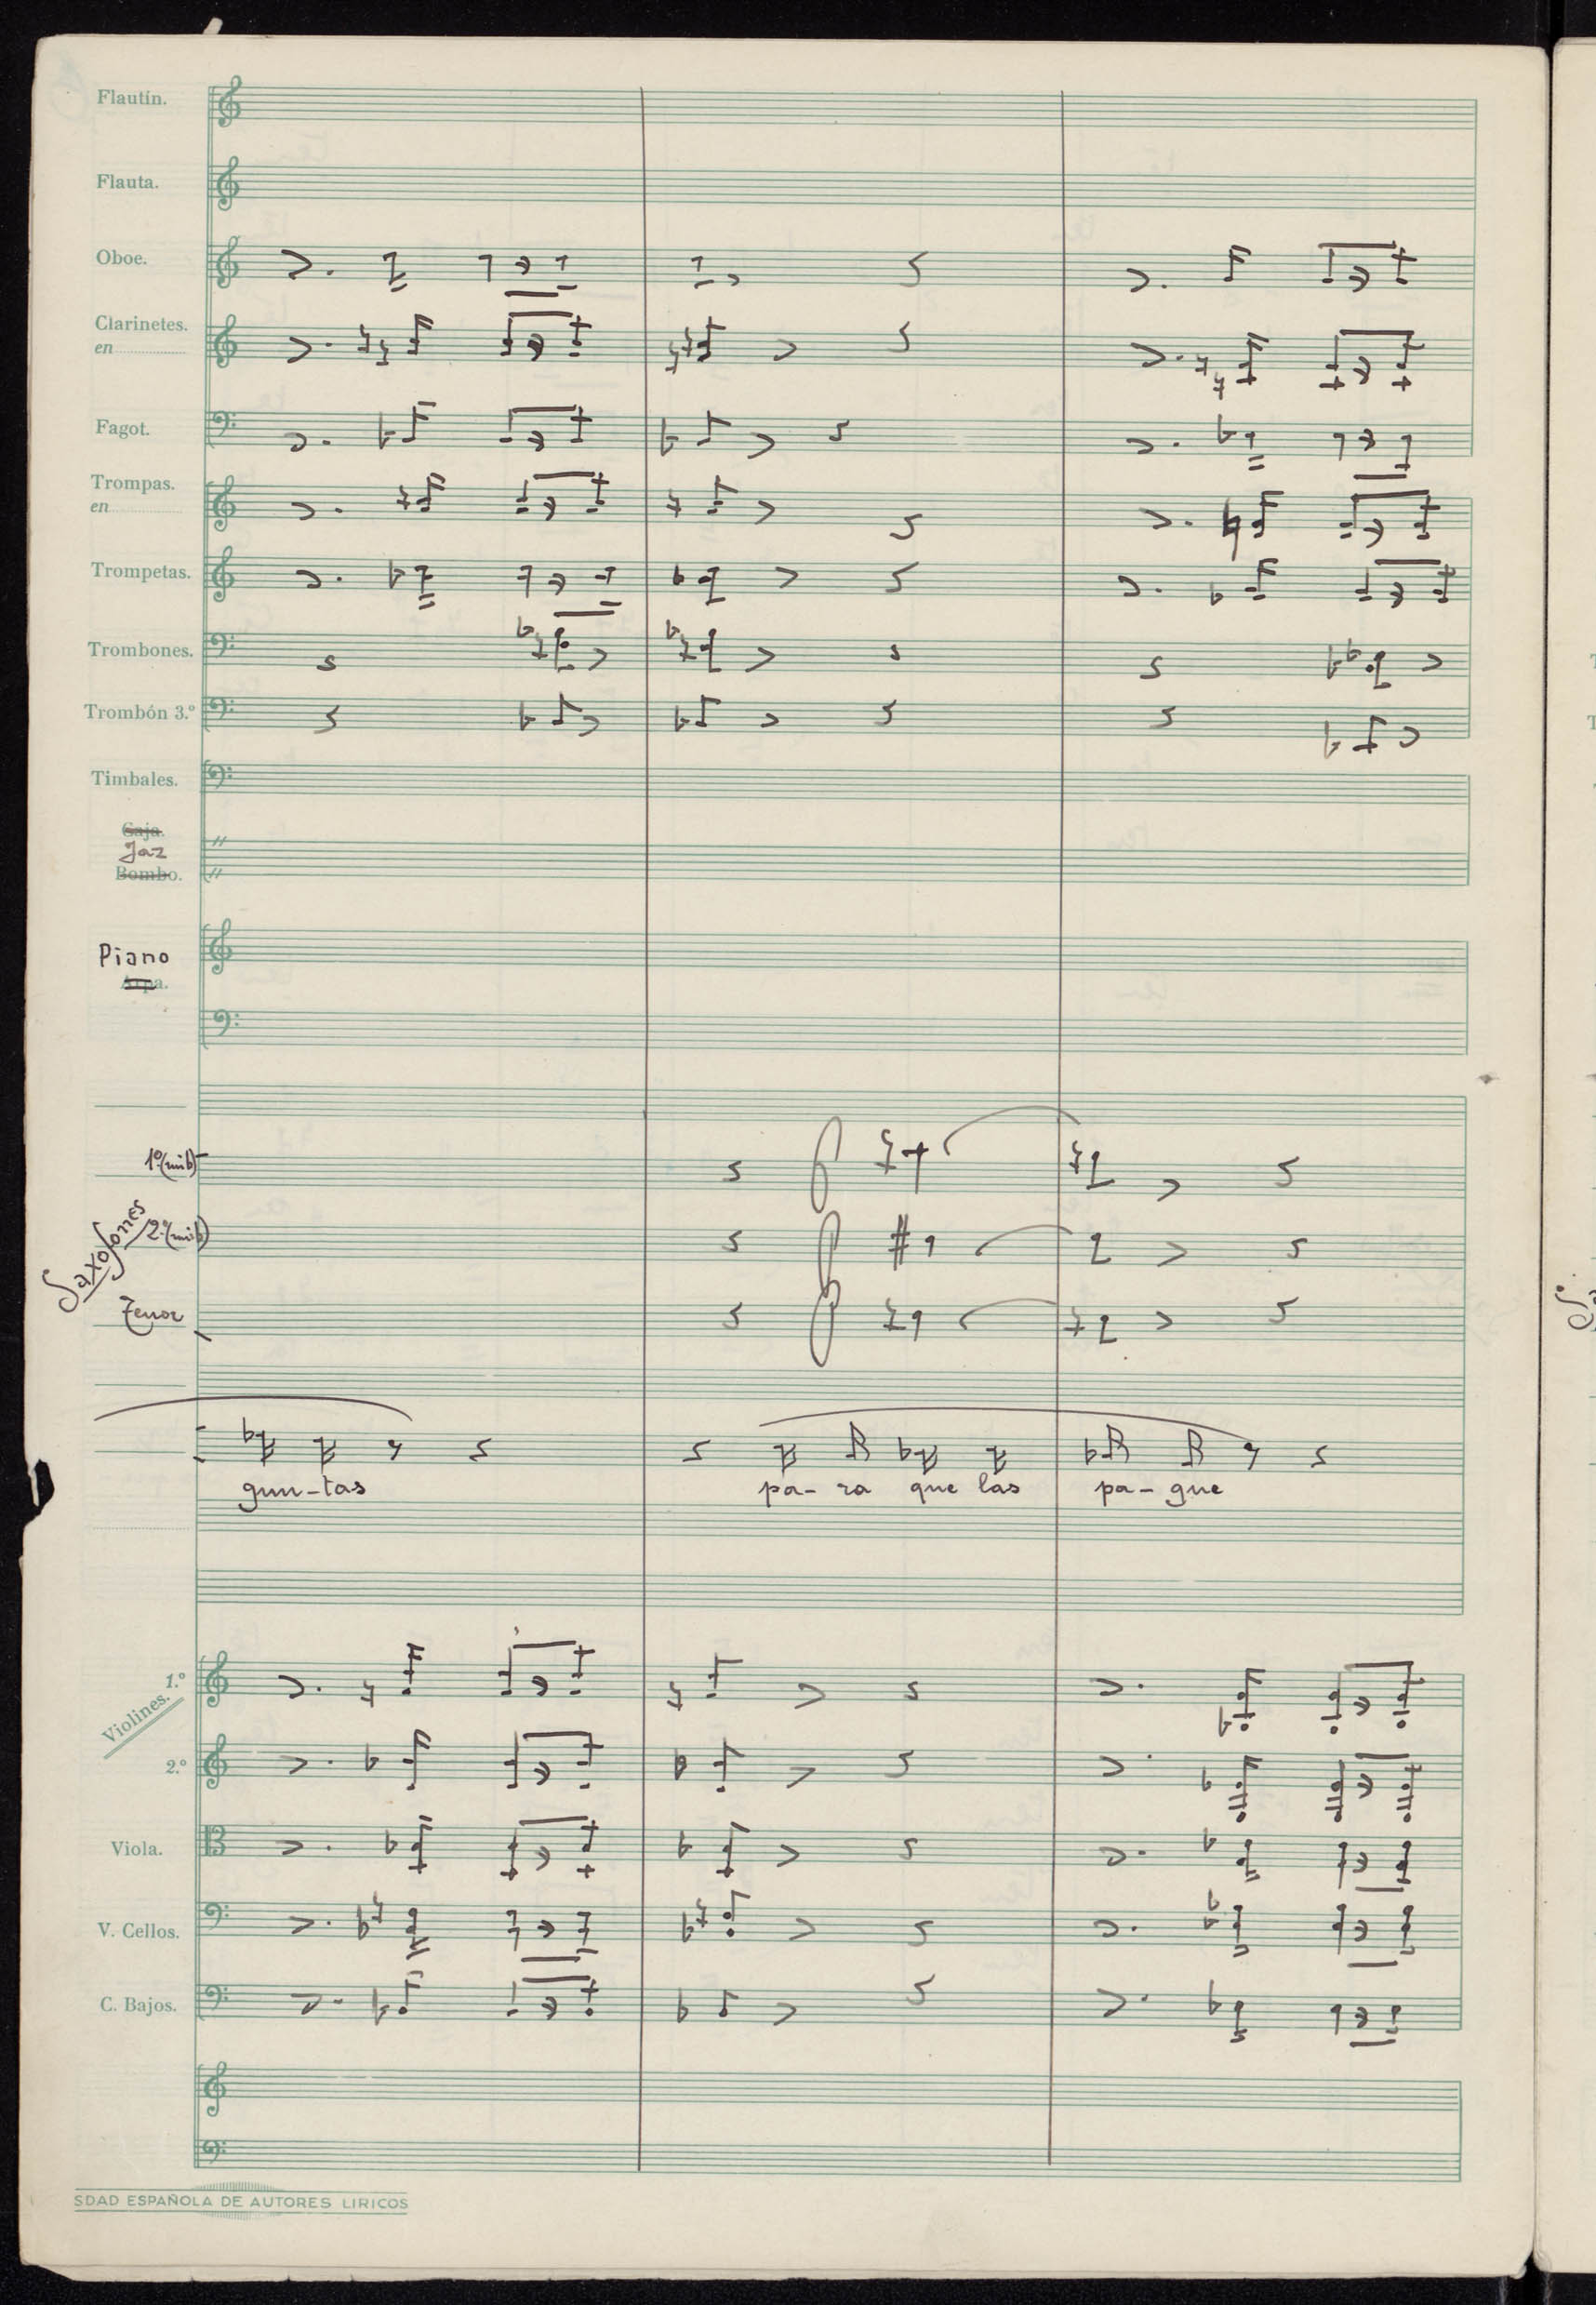 Flautín.
Flauta.
Oboe.
Clarinetes.
en
Fagot.
Trompas.
en
Trompetas.
Trombones.
Trombón 3.º
Timbales.
Caja.
Jaz
Bombo.
Piano
Arpa.
1º (mi b)
Saxofones
2º (mi b)
Tenor
gun-tas pa-ra que las pa-gue
1.º
Violines.
2.º
Viola.
V. Cellos.
C. Bajos.
SDAD ESPAÑOLA DE AUTORES LIRICOS